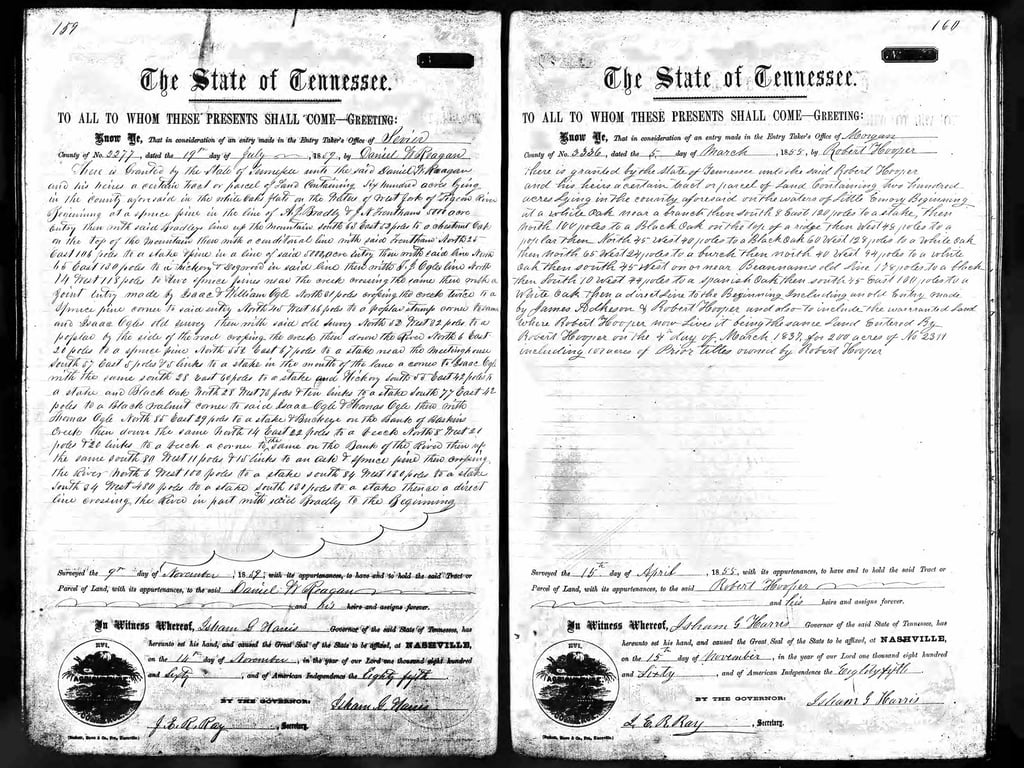 159
The State of Tennessee.
TO ALL TO WHOM THESE PRESENTS SHALL COME—GREETING:
Know Ye, That in consideration of an entry made in the Entry Taker's Office of Sevier
County of No. 2277, dated the 19th day of July, 1859, by Daniel W Reagan
there is Granted by the State of Tennessee unto the said Daniel W Reagan
and his heirs a certain Tract or parcel of Land Containing Six hundred acres lying
in the County aforesaid in the white Oak flats on the Waters of West fork of Pigeon River
Beginning at a spruce pine in the line of A J Bradly & J A 5000 acre
entry then with said Bradlys line up the mountain south 65 East 52 poles to a chestnut Oak
on the top of the Mountain then with a conditional line with said North 25
East 106 poles to a stake & pine in a line of said 5000 acre entry then with said line North
East 130 poles to a hickory & sogwood in said line then with Ogles line North
14 West 118 poles to two spruce pines near the creek crossing the same then with a
Joint entry made by Isaac & William Ogle North 61 poles crossing the creek twice to a
Spruce pine corner to said entry North 40 West 66 poles to a poplar stump corner
and Isaac Ogles old survey then with said old survey North 52 West 82 poles to a
poplar by the side of the road crossing the creek then down the River North 6 East
20 poles to a spruce pine North 558 East 67 poles to a stake near the Meetinghouse
South 57 East 5 poles & 5 links to a stake in the mouth of the lane a corner to Isaac Ogle
with the same south 28 east 60 poles to a stake and Hickory South 55 East 42 poles to
a stake and Black Oak North 28 West 70 poles & ten links to a stake South 77 East 42
poles to a Black walnut corner to said Isaac Ogle & Thomas Ogle then with
Thomas Ogle North 55 East 29 poles to a stake & Buckeye on the Bank of Baskin
Creek then down the same North 14 East 22 poles to a beech North 8 West 21
poles & 20 links to a beech a corner to the same on the Bank of the River then up
the same south 80 West 11 poles & 15 links to an ash & spruce pine then crossing
the River North 6 West 100 poles to a stake south 84 West 180 poles to a stake
South 34 West 400 poles to a stake South 130 poles to a stake thence a direct
line crossing the River in part with said Bradly to the Beginning
Surveyed the 9th day of November, 1859, with its appurtenances, to have and to hold the said Tract or
Parcel of Land, with its appurtenances, to the said Daniel W Reagan
and his heirs and assigns forever.
In Witness Whereof, Isham G Harris Governor of the said State of Tennessee, has
hereunto set his hand, and caused the Great Seal of the State to be affixed, at NASHVILLE,
on the 14th day of November, in the year of our Lord one thousand eight hundred
and Sixty, and of American Independence the Eighty fifth
BY THE GOVERNOR:
Isham G Harris
J. E. R. Ray, Secretary.
XVI.
160
The State of Tennessee.
TO ALL TO WHOM THESE PRESENTS SHALL COME—GREETING:
Know Ye, That in consideration of an entry made in the Entry Taker's Office of Morgan
County of No. 3336, dated the 5 day of March, 1855, by Robert Hooper
there is granted by the State of Tennessee unto the said Robert Hooper
and his heirs a certain Tract or parcel of Land Containing two hundred
acres Lying in the County aforesaid on the waters of Little Emory Beginning
at a white Oak near a branch then south 8 East 120 poles to a stake, then
North 100 poles to a Black Oak on the top of a ridge then West 48 poles to a
poplar then North 45 West 40 poles to a Black Oak 60 West 128 poles to a White Oak
then North 65 West 24 poles to a burch then north 40 West 94 poles to a white
Oak then south 45 West on or near Brannams old Line 178 poles to a black
then South 10 West 44 poles to a Spanish Oak then South 45 East 100 poles to a
White Oak Then a direct Line to the Beginning Including an old Entry made
by James Adkeson & Robert Hooper and also to include the warranted Land
Where Robert Hooper now Lives it being the same Land Entered By
Robert Hooper on the 4 day of March 1837, for 200 acres of No 2311
including 101 acres of Prior titles owned by Robert Hooper
Surveyed the 15th day of April, 1855, with its appurtenances, to have and to hold the said Tract or
Parcel of Land, with its appurtenances, to the said Robert Hooper
and his heirs and assigns forever.
In Witness Whereof, Isham G Harris Governor of the said State of Tennessee, has
hereunto set his hand, and caused the Great Seal of the State to be affixed, at NASHVILLE,
on the 15th day of November, in the year of our Lord one thousand eight hundred
and Sixty, and of American Independence the Eighty fifth
BY THE GOVERNOR:
Isham G Harris
J. E. R. Ray, Secretary.
XVI.